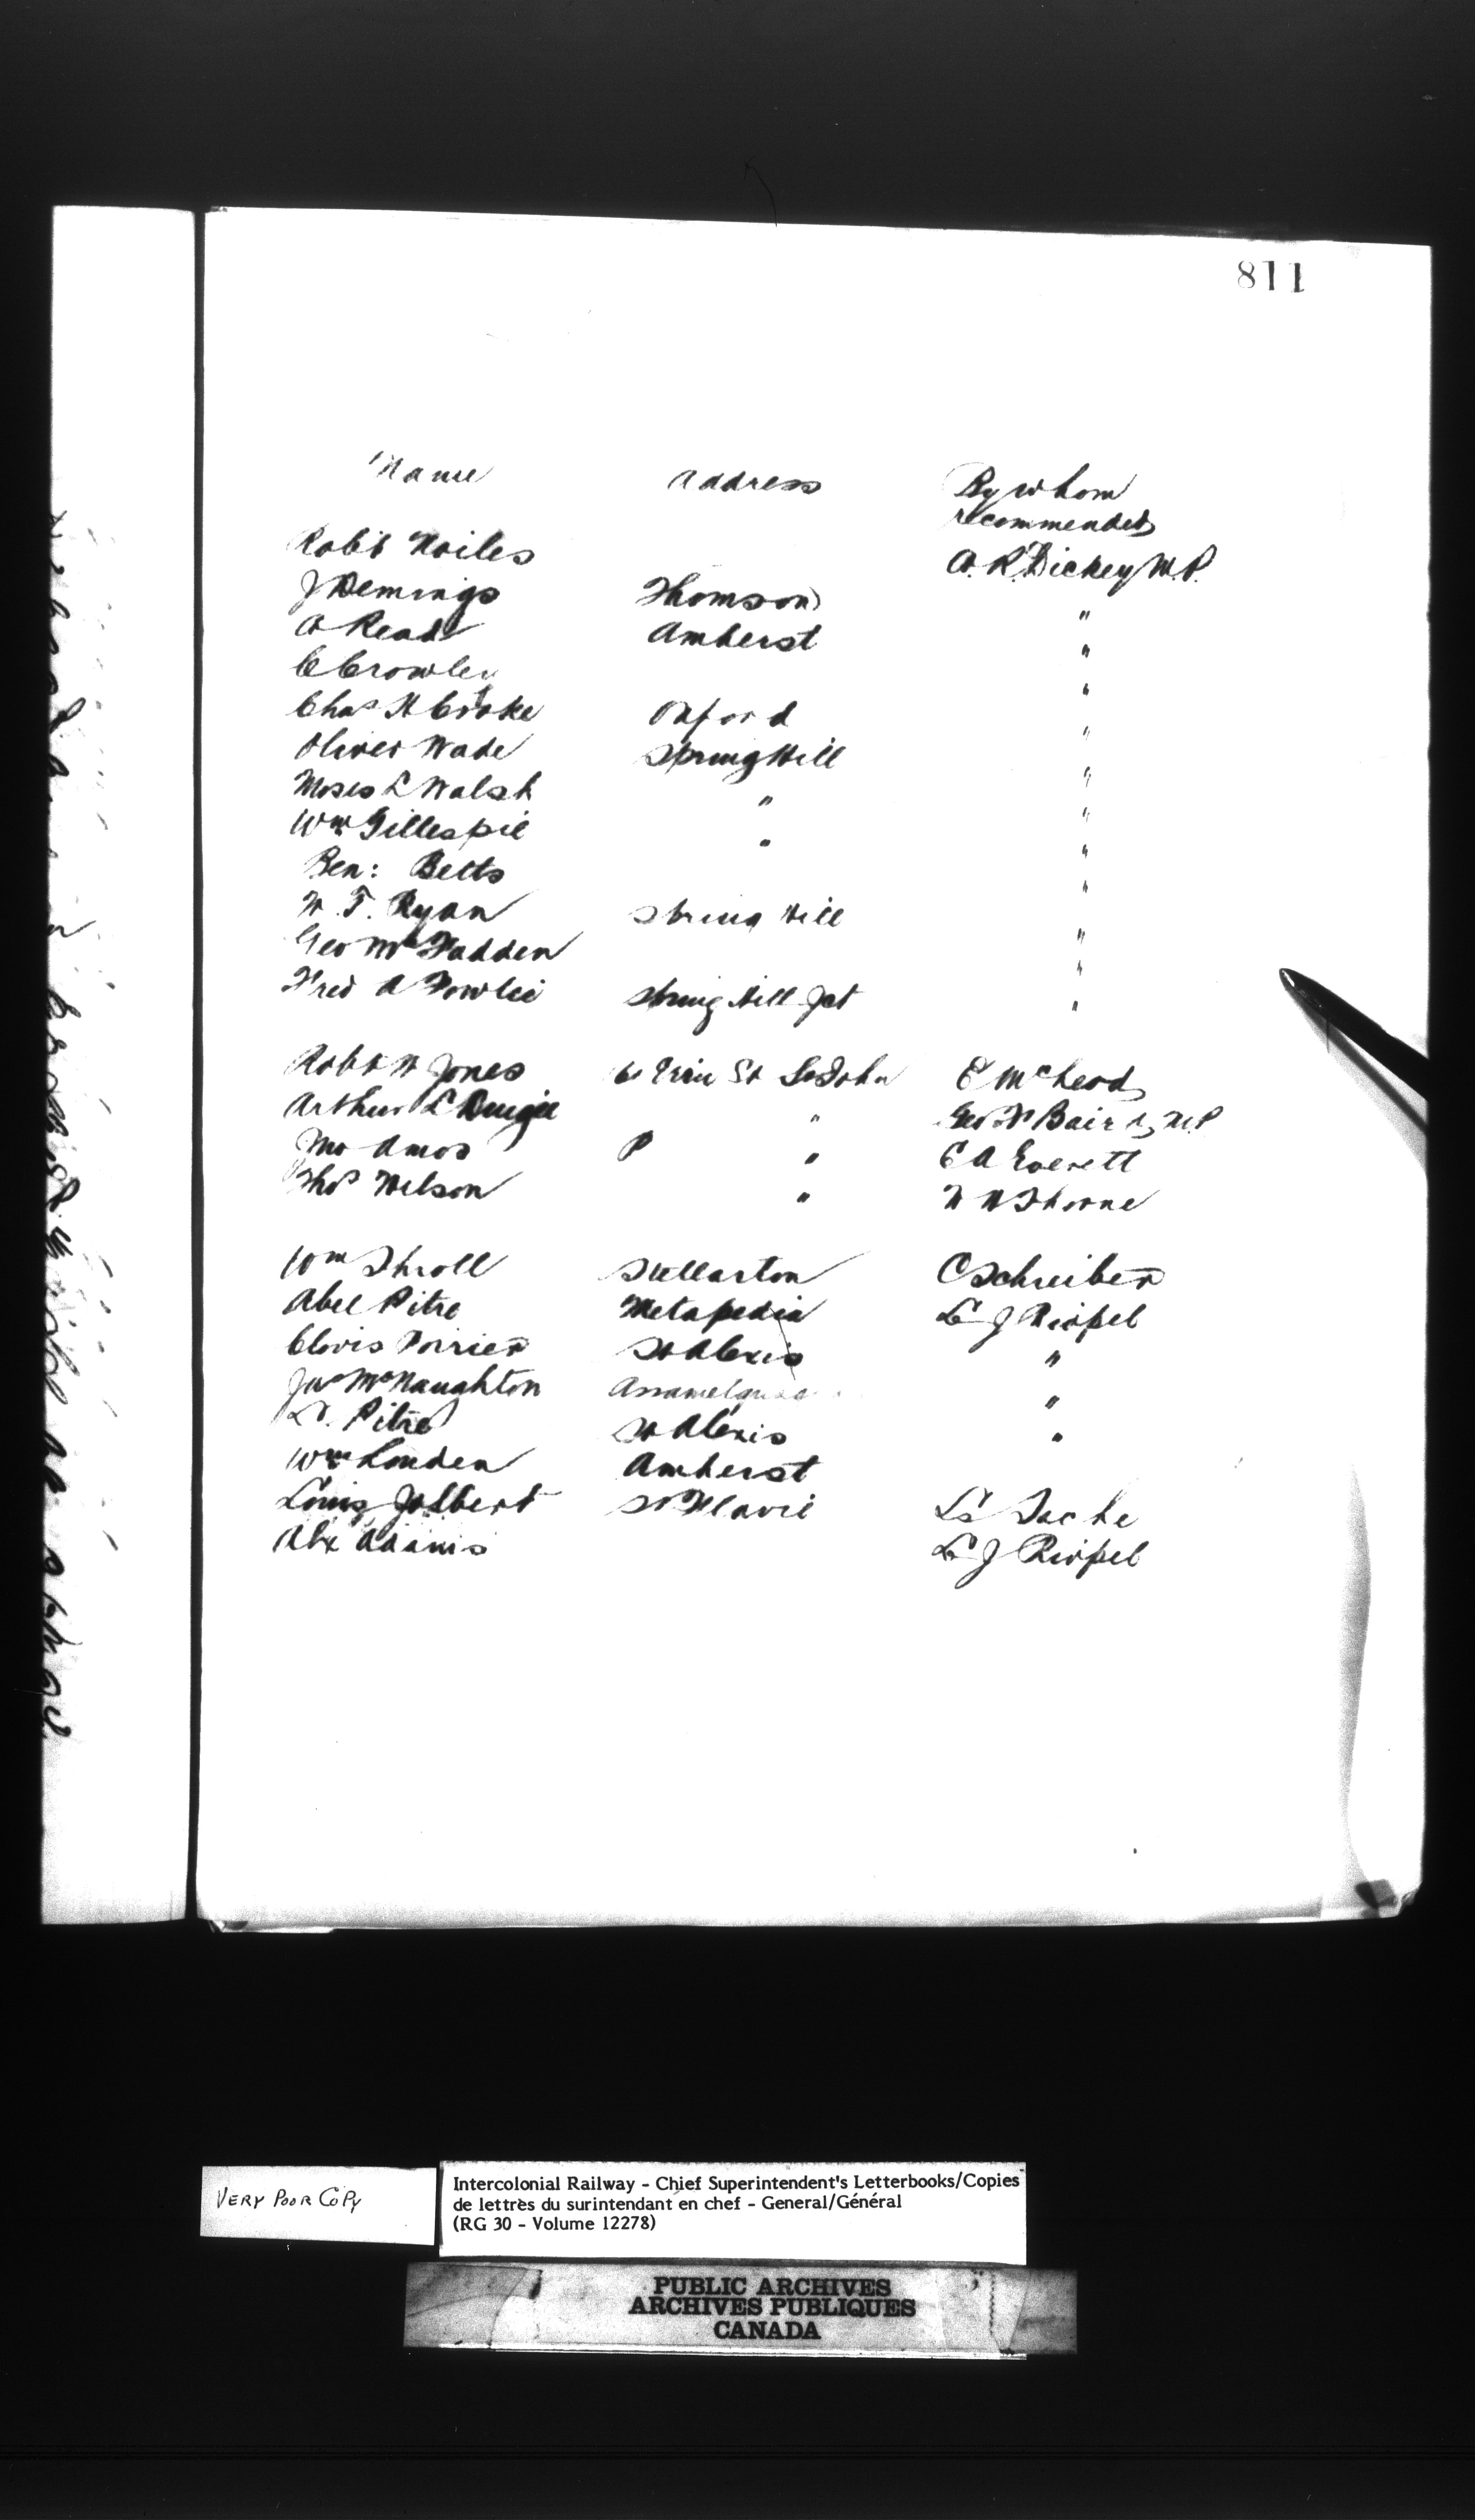 811
Name address By whom
recommended
Robt Noiles A. R. Dickey M.P.
J Demings Thomson "
A Read Amherst "
C Crowley "
Chas H Crooke Oxford "
Oliver Wade SpringHill "
Moses L Walsh " "
Wm Gillespie " "
Ben: Betts "
W. T. Ryan Spring Hill "
Geo McFadden "
Fred A Fowlie Spring Hill Jct "
Robt W Jones Erin St St John E McLeod
Arthur L " Geo F Baird, M.P
Jno Amos " C A Everett
Thos Wilson " W H Thorne
Wm Throll Stellarton C Schreiber
Abel Pitre Metapedia L J Riopel
Clovis Poirier St Alexis "
Jas McNaughton "
Pitre St Alexis "
Wm Louden Amherst
Louis Jolbert St Flavie Ls Tache
Alex Adams L J Riopel
VERY POOR COPY
Intercolonial Railway - Chief Superintendent's Letterbooks/Copies
de lettres du surintendant en chef - General/Général
(RG 30 - Volume 12278)
PUBLIC ARCHIVES
ARCHIVES PUBLIQUES
CANADA